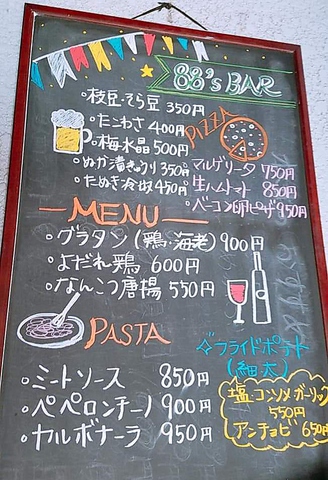 88's BAR
・枝豆・そら豆 350円
・たこわさ 400円
・梅水晶 500円
・ぬか漬きゅうり 350円
・たぬき冷奴 450円
PIZZA
・マルゲリータ 750円
・生ハムトマト 850円
・ベーコン卵ピザ 950円
MENU
・グラタン(鶏・海老) 900円
・よだれ鶏 600円
・なんこつ唐揚 550円
PASTA
・ミートソース 850円
・ペペロンチーノ 900円
・カルボナーラ 950円
☆フライドポテト
(細・太)
塩・コンソメ・ガーリック
550円
アンチョビ 650円